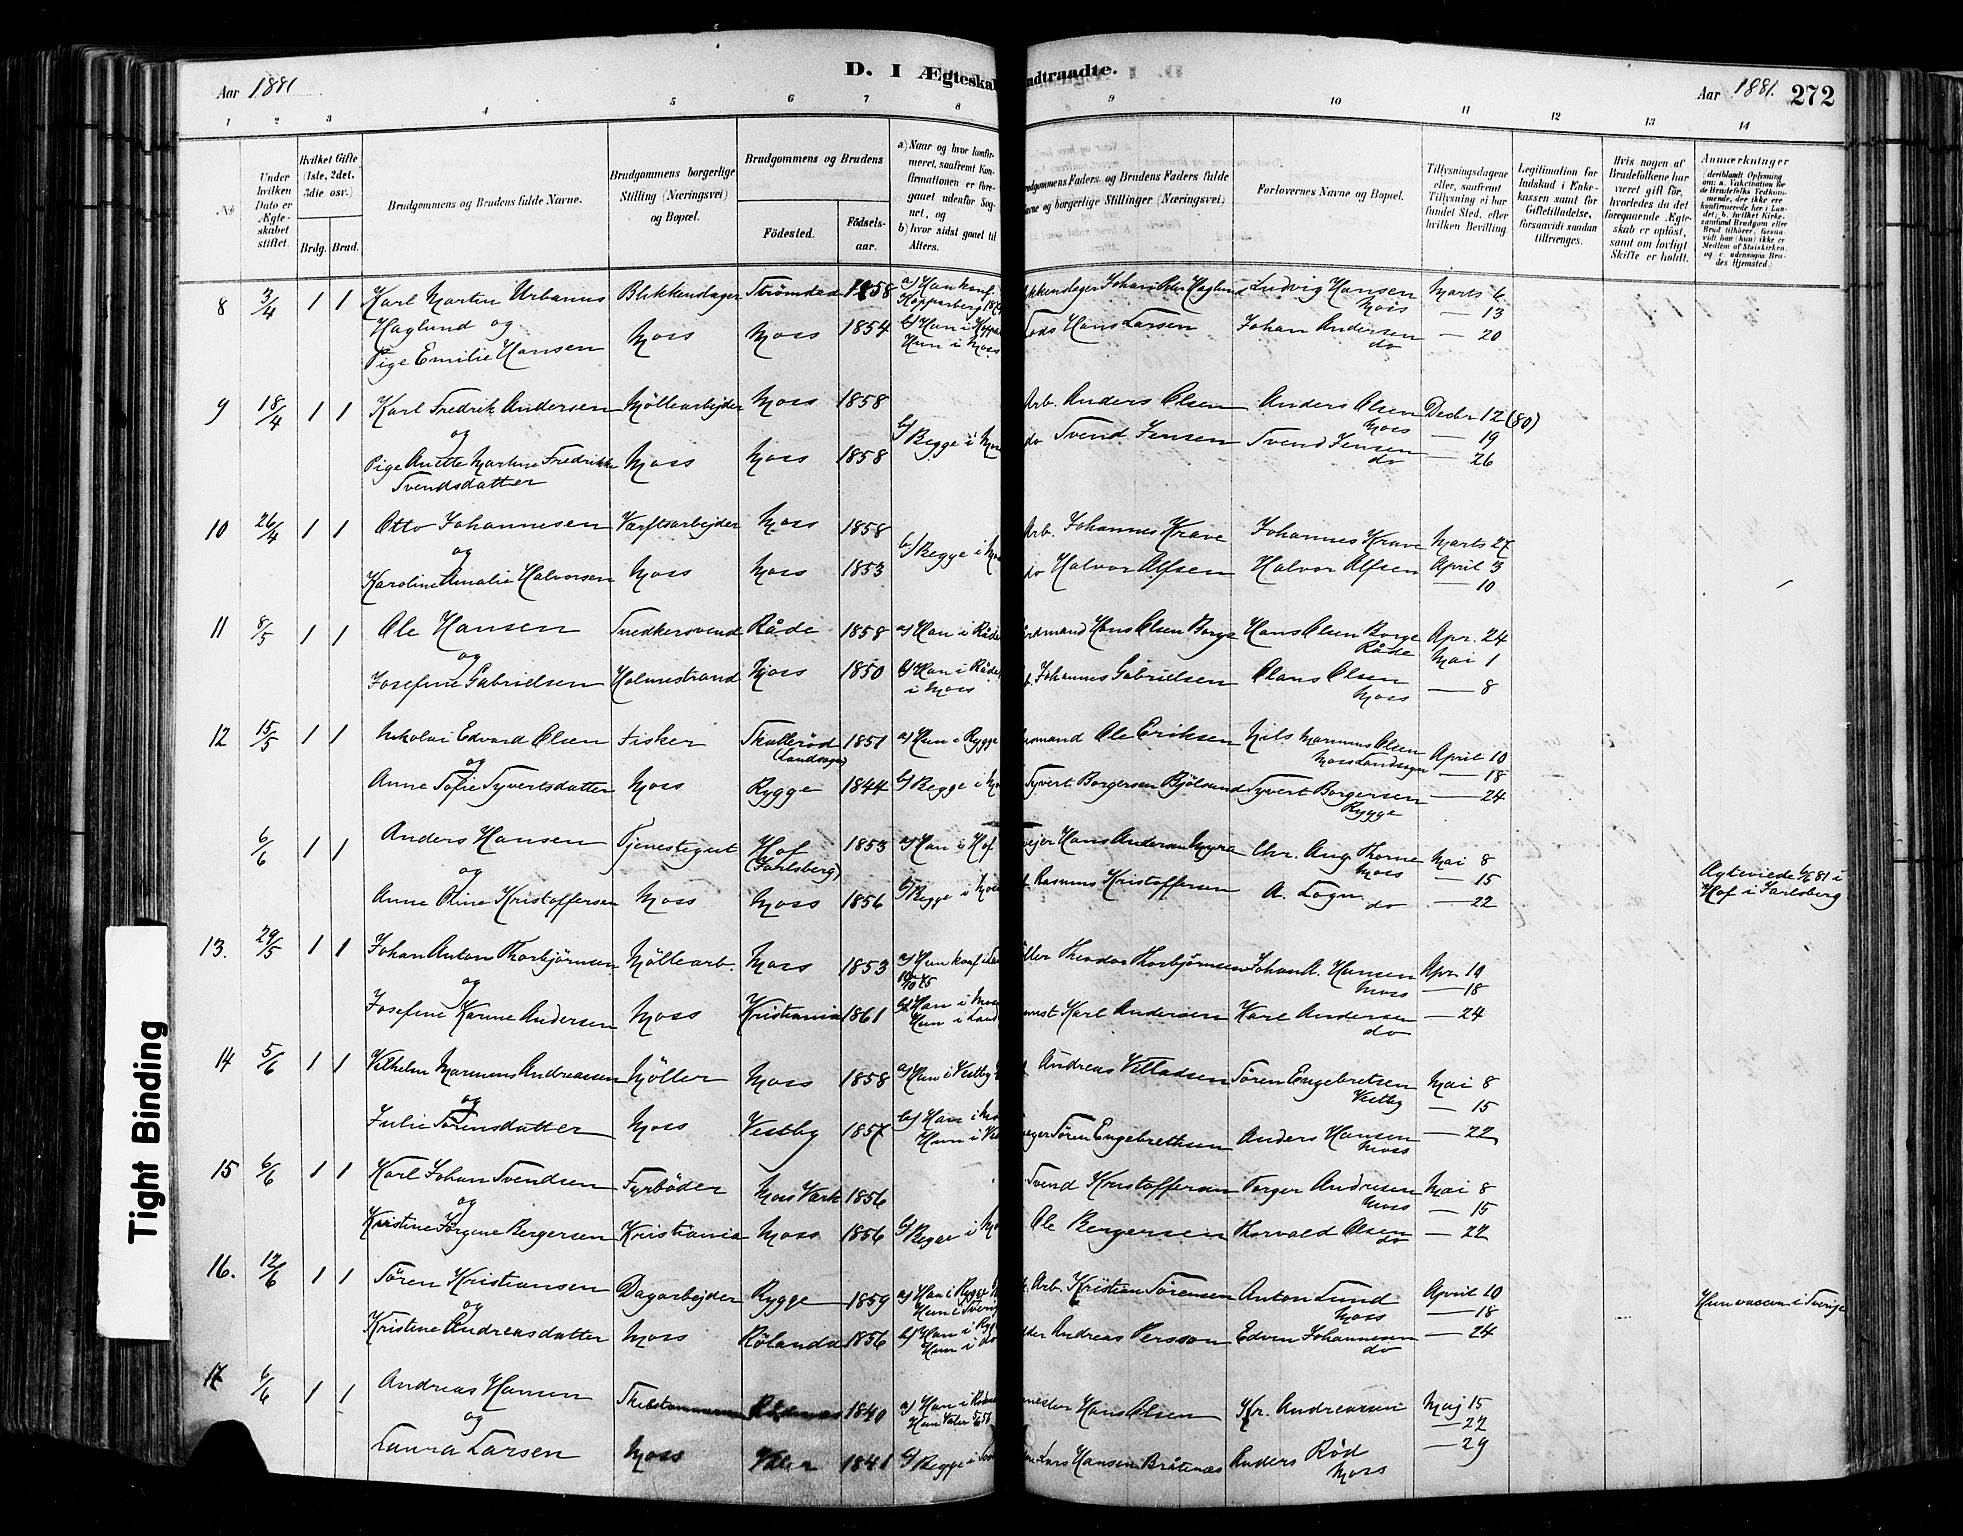 Aar 1881
D. I Ægteskab
ndtraadte.
Aar 1881. 272
1 2 3 4 5 6 7 8 9 10 11 12 13 14
No
Under hvilken Dato er Ægteskabet stiftet.
Hvilket Gifte (1ste, 2det, 3die osv.)
Brdg. Brud.
Brudgommens og Brudens fulde Navne.
Brudgommens borgerlige Stilling (Næringsvei) og Bopæl.
Brudgommens og Brudens
Födested.
Födselsaar.
a) Naar og hvor konfirmeret, saafremt Konfirmationen er foregaaet udenfor Sognet, og
b) hvor sidst gaaet til Alters.
Brudgommens Faders og Brudens Faders fulde
Navne og borgerlige Stillinger (Næringsvei)
Forlovernes Navne og Bopæl.
Tillysningsdagene eller, saafremt Tillysning ei har fundet Sted, efter hvilken Bevilling.
Legitimation for Indskud i Enkekassen samt for Giftetilladelse, forsaavidt saadan tiltrænges.
Hvis nogen af Brudefolkene har været gift för, hvorledes da det foregaaende Ægteskab er oplöst, samt om lovligt Skifte er holdt.
Anmærkninger
(deriblandt Oplysning om: a. Vakcination for de Brudefolks Vedkommende, der ikke ere konfirmerede her i Landet; b. hvilket Kirkesamfund Brudgom eller Brud tilhörer, forsaavidt han (hun) ikke er Medlem af Statskirken, og c. udensogns Brudes Hjemsted.)
8 3/4 1 1 Karl Martin Urbanus Blikkenslager Strömstad 1858 a) Han konf. Kopparberg
Haglund og
Pige Emilie Hansen Moss Moss 1854 Hun i Moss
Johan Haglund Ludvig Hansen Moss Marts 6
— 13
Hans Larsen Johan Andersen do — 20
9 18/4 1 1 Karl Fredrik Andersen Möllearbejder Moss 1858
og
Pige Anette Martine Fredrikke Moss Moss 1858 b) Begge i
Svendsdatter
Arb. Anders Olsen Anders Olsen Moss Decbr 12 (80)
— 19
do Svend Jensen Svend Jensen do — 26
10 26/4 1 1 Otto Johannesen Værftsarbejder Moss 1858
og b) Begge i
Karoline Amalie Halvorsen Moss Moss 1853
Arb. Johannes Krave Johannes Krave Marts 27
do Halvor Alfsen Halvor Alfsen April 3
— 10
11 8/5 1 1 Ole Hansen Snedkersvend Råde 1858 a) Han i Råde
og
Josefine Gabrielsen Holmestrand Moss 1850 b) Han i Råde
i Moss
Hans Olsen Borge Hans Olsen Borge Råde Apr. 24
Mai 1
Johannes Gabrielsen Claus Olsen Moss — 8
12 15/5 1 1 Nikolai Edvard Olsen Fisker (Landsogn) 1851 a) Hun i Rygge
og
Anne Sofie Syvertsdatter Moss Rygge 1844 b) Begge i
Ole Eriksen Nils Marinius Olsen Moss Landsogn April 10
— 18
Syvert Borgersen Syvert Borgersen Rygge — 24
6/6 1 1 Anders Hansen Tjenestegut Hof (Jarlsberg) 1853 a) Han i Hof
og
Anne Oline Kristoffersen Moss Moss 1856 b) Begge i
Hans Andersen Myra Chr. Aug. Thorne Moss Mai 8
— 15
Rasmus Kristoffersen A. Logn do — 22
Ægteviede 6/6 81 i
Hof i Jarlsberg
13. 29/5 1 1 Johan Anton Thorbjörnsen Möllearb. Moss 1853 a) Hun konf.
og
Josefine Karine Andersen Moss Kristiania 1861 b) Han i
Hun i
Theodor Thorbjörnsen Johan A. Hansen Moss Apr 10
— 18
Karl Andersen Karl Andersen do — 24
14 5/6 1 1 Vilhelm Marinius Andreassen Möller Moss 1858 a) Hun i Vestby
og
Julie Sörensdatter Moss Vestby 1857 b) Han i
Hun i
Andreas Villadsen Sören Engebretsen Vestby Mai 8
— 15
Sören Engebrethsen Anders Hansen Moss — 22
15 6/6 1 1 Karl Johan Svendsen Fyrböder Moss Værk 1856
og
Kristine Jörgine Bergersen Kristiania Moss 1856 b) Begge i
Svend Kristoffersen Torger Andresen Moss Mai 8
— 15
Ole Bergersen Thorvald Olsen do — 22
16. 12/6 1 1 Sören Kristiansen Dagarbejder Rygge 1859 a) Han i Rygge
og Hun i Sverig
Kristine Andreasdatter Moss Rölanda 1856 b) Han i
Hun i do
Arb. Kristian Sörensen Anton Lund Moss April 10
— 18
Andreas Persson Edvin Johannesen do — 24
Hun vaccin i Sverige
17 6/6 1 1 Andreas Hansen 1840 a) Han i
og
Laura Larsen Moss Våler 1841 b) Begge i
Hans Olsen Kr. Andreassen Maj 15
— 22
Lars Hansen Bråtenæs Anders Röd Moss — 29
Tight Binding